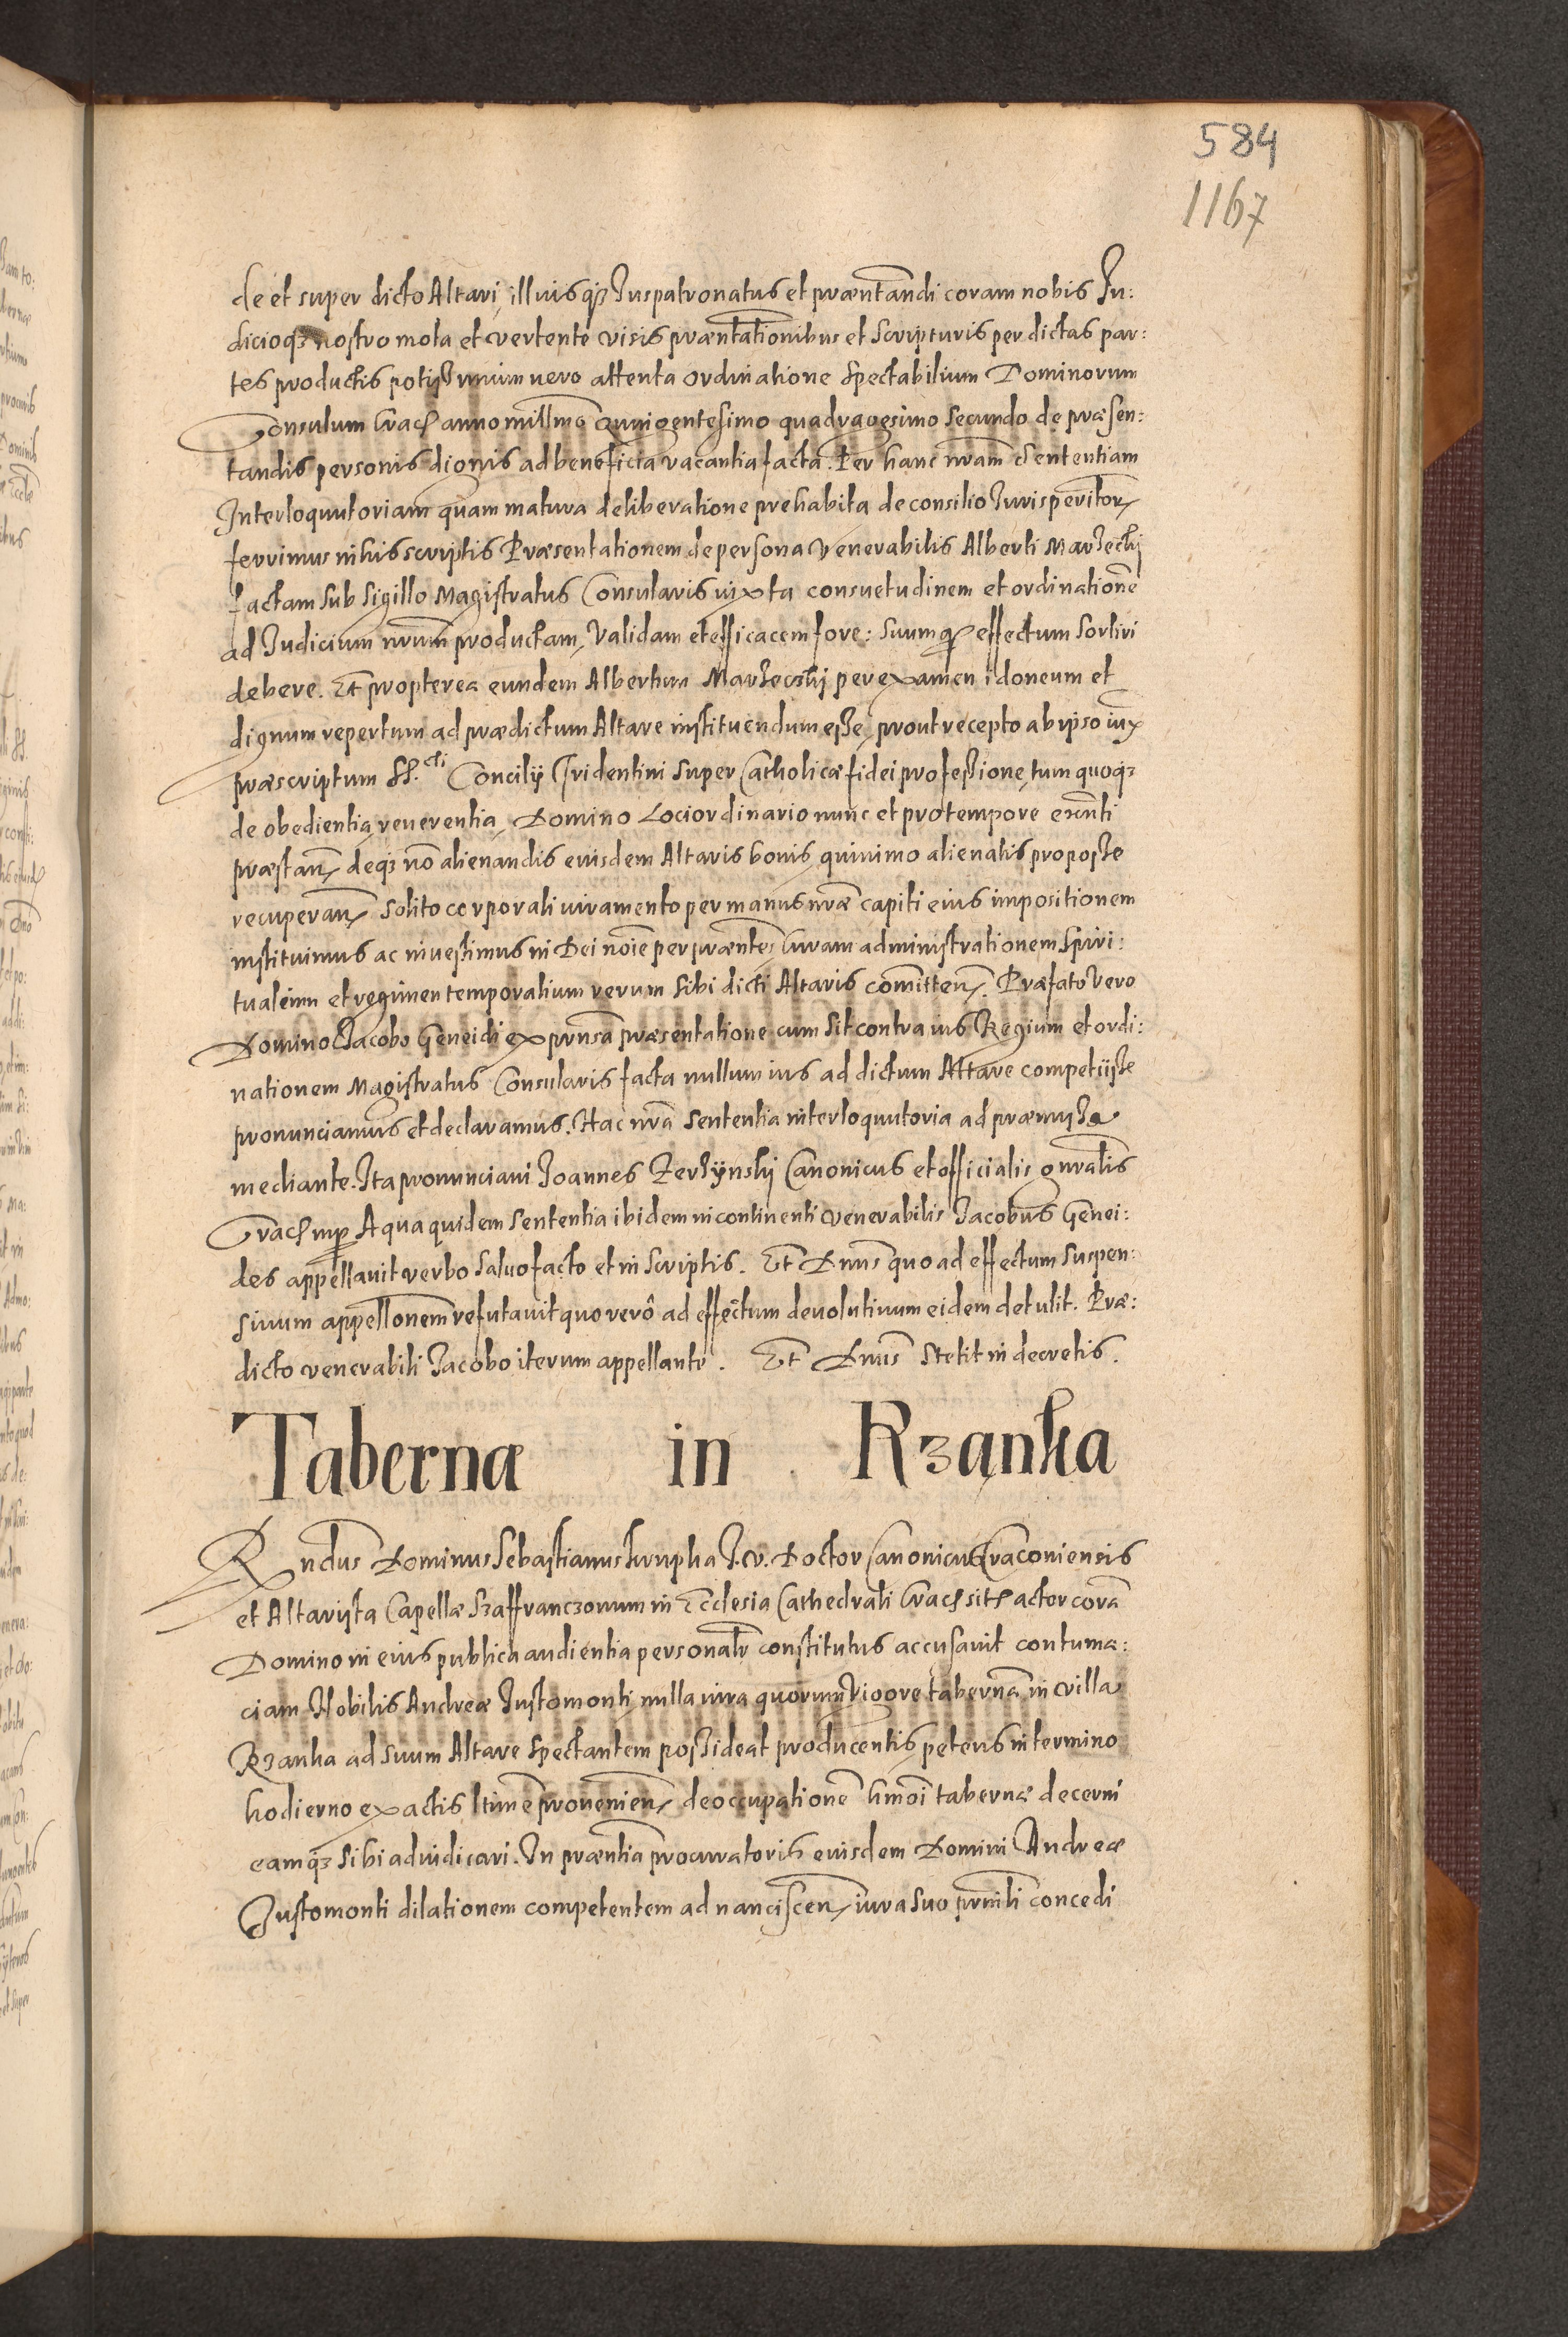 584
1167
de et super dicto Altari, illuisq3 Juspatronatus et præntandi coram nobis Ju:
dicioq3 nostro mota et vertente visis præntationibus et scripturis per dictas par:
tes productis potissimum vero attenta ordinatione Spectabilium Dominorum
Consulum Crac anno millmo Quingentesimo quadragesimo secundo de præsen:
tandis personis dignis ad beneficia vacantia facta. Per hanc nram Sententiam
Interloquutoriam quam matura deliberatione prehabita de consilio Jurisperitor
ferrimus in his scriptis Præsentationem de persona Venerabilis Alberti
factam sub Sigillo Magistratus Consularis iuxta consuetudinem et ordinatione
ad Judicium nrum productam, Validam et efficacem fore: suumq3 effectum sortiri
debere. Et propterea eundem Albertum per examen idoneum et
dignum repertum ad prædictum Altare instituendum esse, prout recepto ab ipso iux
præscriptum SS.cti Concilij Tridentini super Catholicæ fidei professione, tum quoq3
de obedientia, reuerentia, Domino Lociordinario nunc et pro tempore exnti
præstan, deq3 no alienandis eiusdem Altaris bonis, quinimo alienatis pro posse
recuperan, solito corporali iuramento per manus nræ capiti eius impositionem
instituimus ac inuestimus in Dei noie per præntes Curam administrationem Spiri:
tualem et regimen temporalium rerum sibi dicti Altaris comitten. Præfato vero
Domino Jacobo Geneidi ex prnsa præsentatione cum sit contra ius Regium et ordi:
nationem Magistratus Consularis facta nullum ius ad dictum Altare competiisse
pronunciamus et declaramus. Hac nra Sententia interloquutoria ad præmissa
mediante. Ita pronunciaui Joannes Canonicus et officialis gnralis
Crac mp A qua quidem sententia ibidem in continenti venerabilis Jacobus Genei:
des appellauit verbo saluo facto et in scriptis. Et Dnus quo ad effectum suspen:
siuum appellonem refutauit quo verô ad effectum deuolutiuum eidem detulit. Præ:
dicto venerabili Jacobo iterum appellante. Et Dnus stetit in decretis.
Taberna in Rzanka
Rndus Dominus Sebastianus J. V. Doctor Canonicus Craconiensis
et Altarista Capellæ Szaffranczonum in Ecclesia Cathedrali Crac sit actor cora
Domino in eius publica audientia personalr constitutus accusauit contuma:
ciam Nobilis Andreæ Justomonti nulla iura quorum vigore taberna in villa
Rzanka ad suum Altare spectantem possideat producentis, petens in termino
hodierno ex actis ltime prouenien deoccupatione hmoi tabernæ decerni
eamq3 sibi adiudicari. In præntia procuratoris eiusdem Domini Andreæ
Justomonti dilationem competentem ad nanciscen iura suo prncili concedi